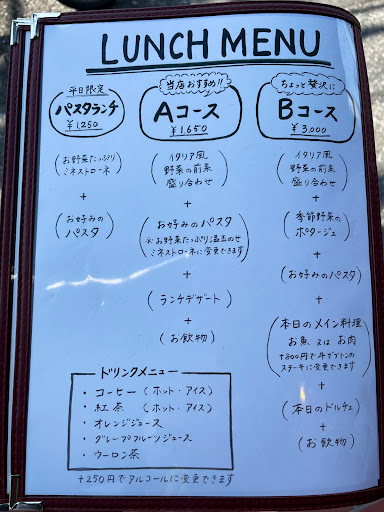 LUNCH MENU
平日限定
パスタランチ
¥1,250
(お野菜たっぷり
ミネストローネ)
+
(お好みの
パスタ)
当店おすすめ!!
Aコース
¥1,650
(イタリア風
野菜の前菜
盛り合わせ)
+
(お好みのパスタ
※お野菜たっぷり温玉のせ
ミネストローネに変更できます)
+
(ランチデザート)
+
(お飲物)
ちょっと贅沢に
Bコース
¥3,000
(イタリア風
野菜の前菜
盛り合わせ)
+
(季節野菜の
ポタージュ)
+
(お好みのパスタ)
+
(本日のメイン料理
お魚 又は お肉
+800円で牛ザブトンの
ステーキに変更できます)
+
(本日のドルチェ)
+
(お飲物)
ドリンクメニュー
・コーヒー (ホット・アイス)
・紅茶 (ホット・アイス)
・オレンジジュース
・グレープフルーツジュース
・ウーロン茶
+250円でアルコールに変更できます